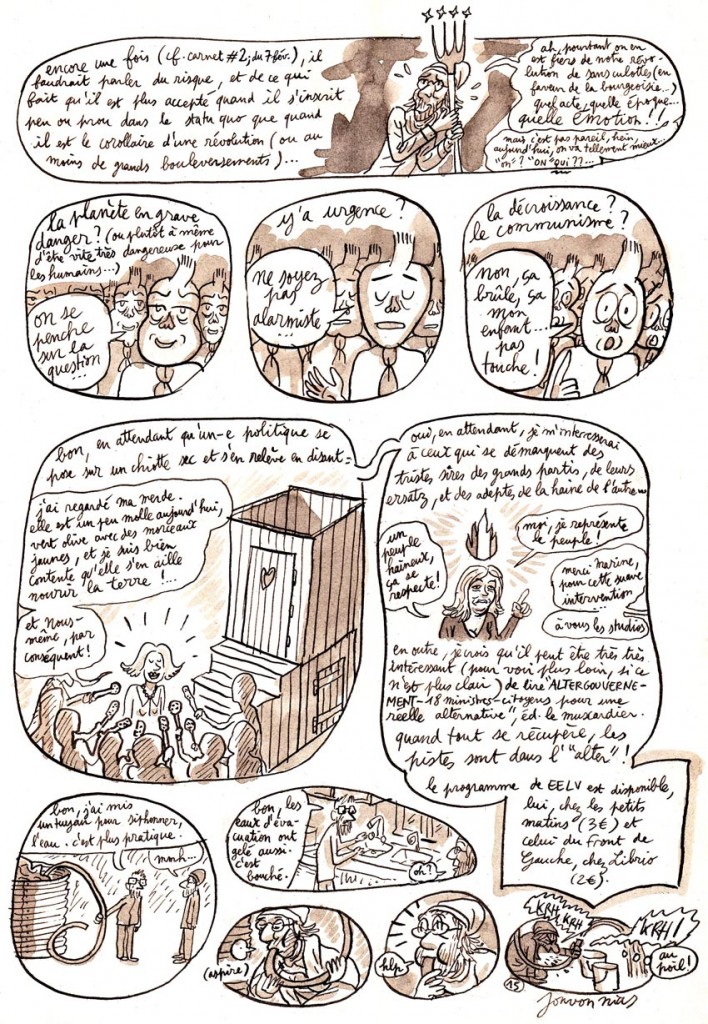 encore une fois (cf. carnet #2; du 7 fév.), il
faudrait parler du risque, et de ce qui
fait qu'il est plus accepté quand il s'inscrit
peu ou prou dans le statu quo que quand
il est le corollaire d'une révolution (ou au
moins de grands bouleversements)...
ah, pourtant on en
est fiers de notre révo-
lution de sans culottes (en
faveur de la bourgeoisie...)
quel acte, quelle époque...
quelle émotion!!
mais c'est pas pareil, hein,
aujourd'hui, on va tellement mieux...
"on"? "ON" QUI??...
la planète en grave
danger? (ou plutôt à même
d'être vite très dangereuse pour
les humains...)
on se
penche
sur la
question
...
y'a urgence?
ne soyez
pas
alarmiste
...
la décroissance?
le communisme??
non, ça
brûle, ça
mon
enfant...
pas
touche!
bon, en attendant qu'un-e politique se
pose sur un chiotte sec et s'en relève en disant:
j'ai regardé ma merde.
elle est un peu molle aujourd'hui,
vert olive avec des morceaux
jaunes, et je suis bien
contente qu'elle s'en aille
nourrir la terre!...
et nous-
même, par
conséquent!
oui, en attendant, je m'intéresserai
à ceux qui se démarquent des
tristes sires des grands partis, de leurs
ersatz, et des adeptes de la haine de l'autre...
un
peuple
haineux,
ça se
respecte!
moi, je représente
le peuple!
merci marine,
pour cette suave
intervention
à vous les studios
en outre, je crois qu'il peut être très très
intéressant (pour voir plus loin, si ce
n'est plus clair) de lire "ALTERGOUVERNE-
MENT - 18 ministres-citoyens pour une
réelle alternative", éd. le muscardier.
quand tout se récupère, les
pistes sont dans l'"alter"!
le programme de EELV est disponible,
lui, chez les petits
matins (3€) et
celui du Front de
Gauche, chez Librio
(2€).
bon, j'ai mis
un tuyau pour siphonner
l'eau. c'est plus pratique.
mmh...
bon, les
eaux d'éva-
cuation ont
gelé aussi.
c'est
bouché.
oh?
(aspire)
hlp
KRH
KRH
KRH!
au
poil!
15